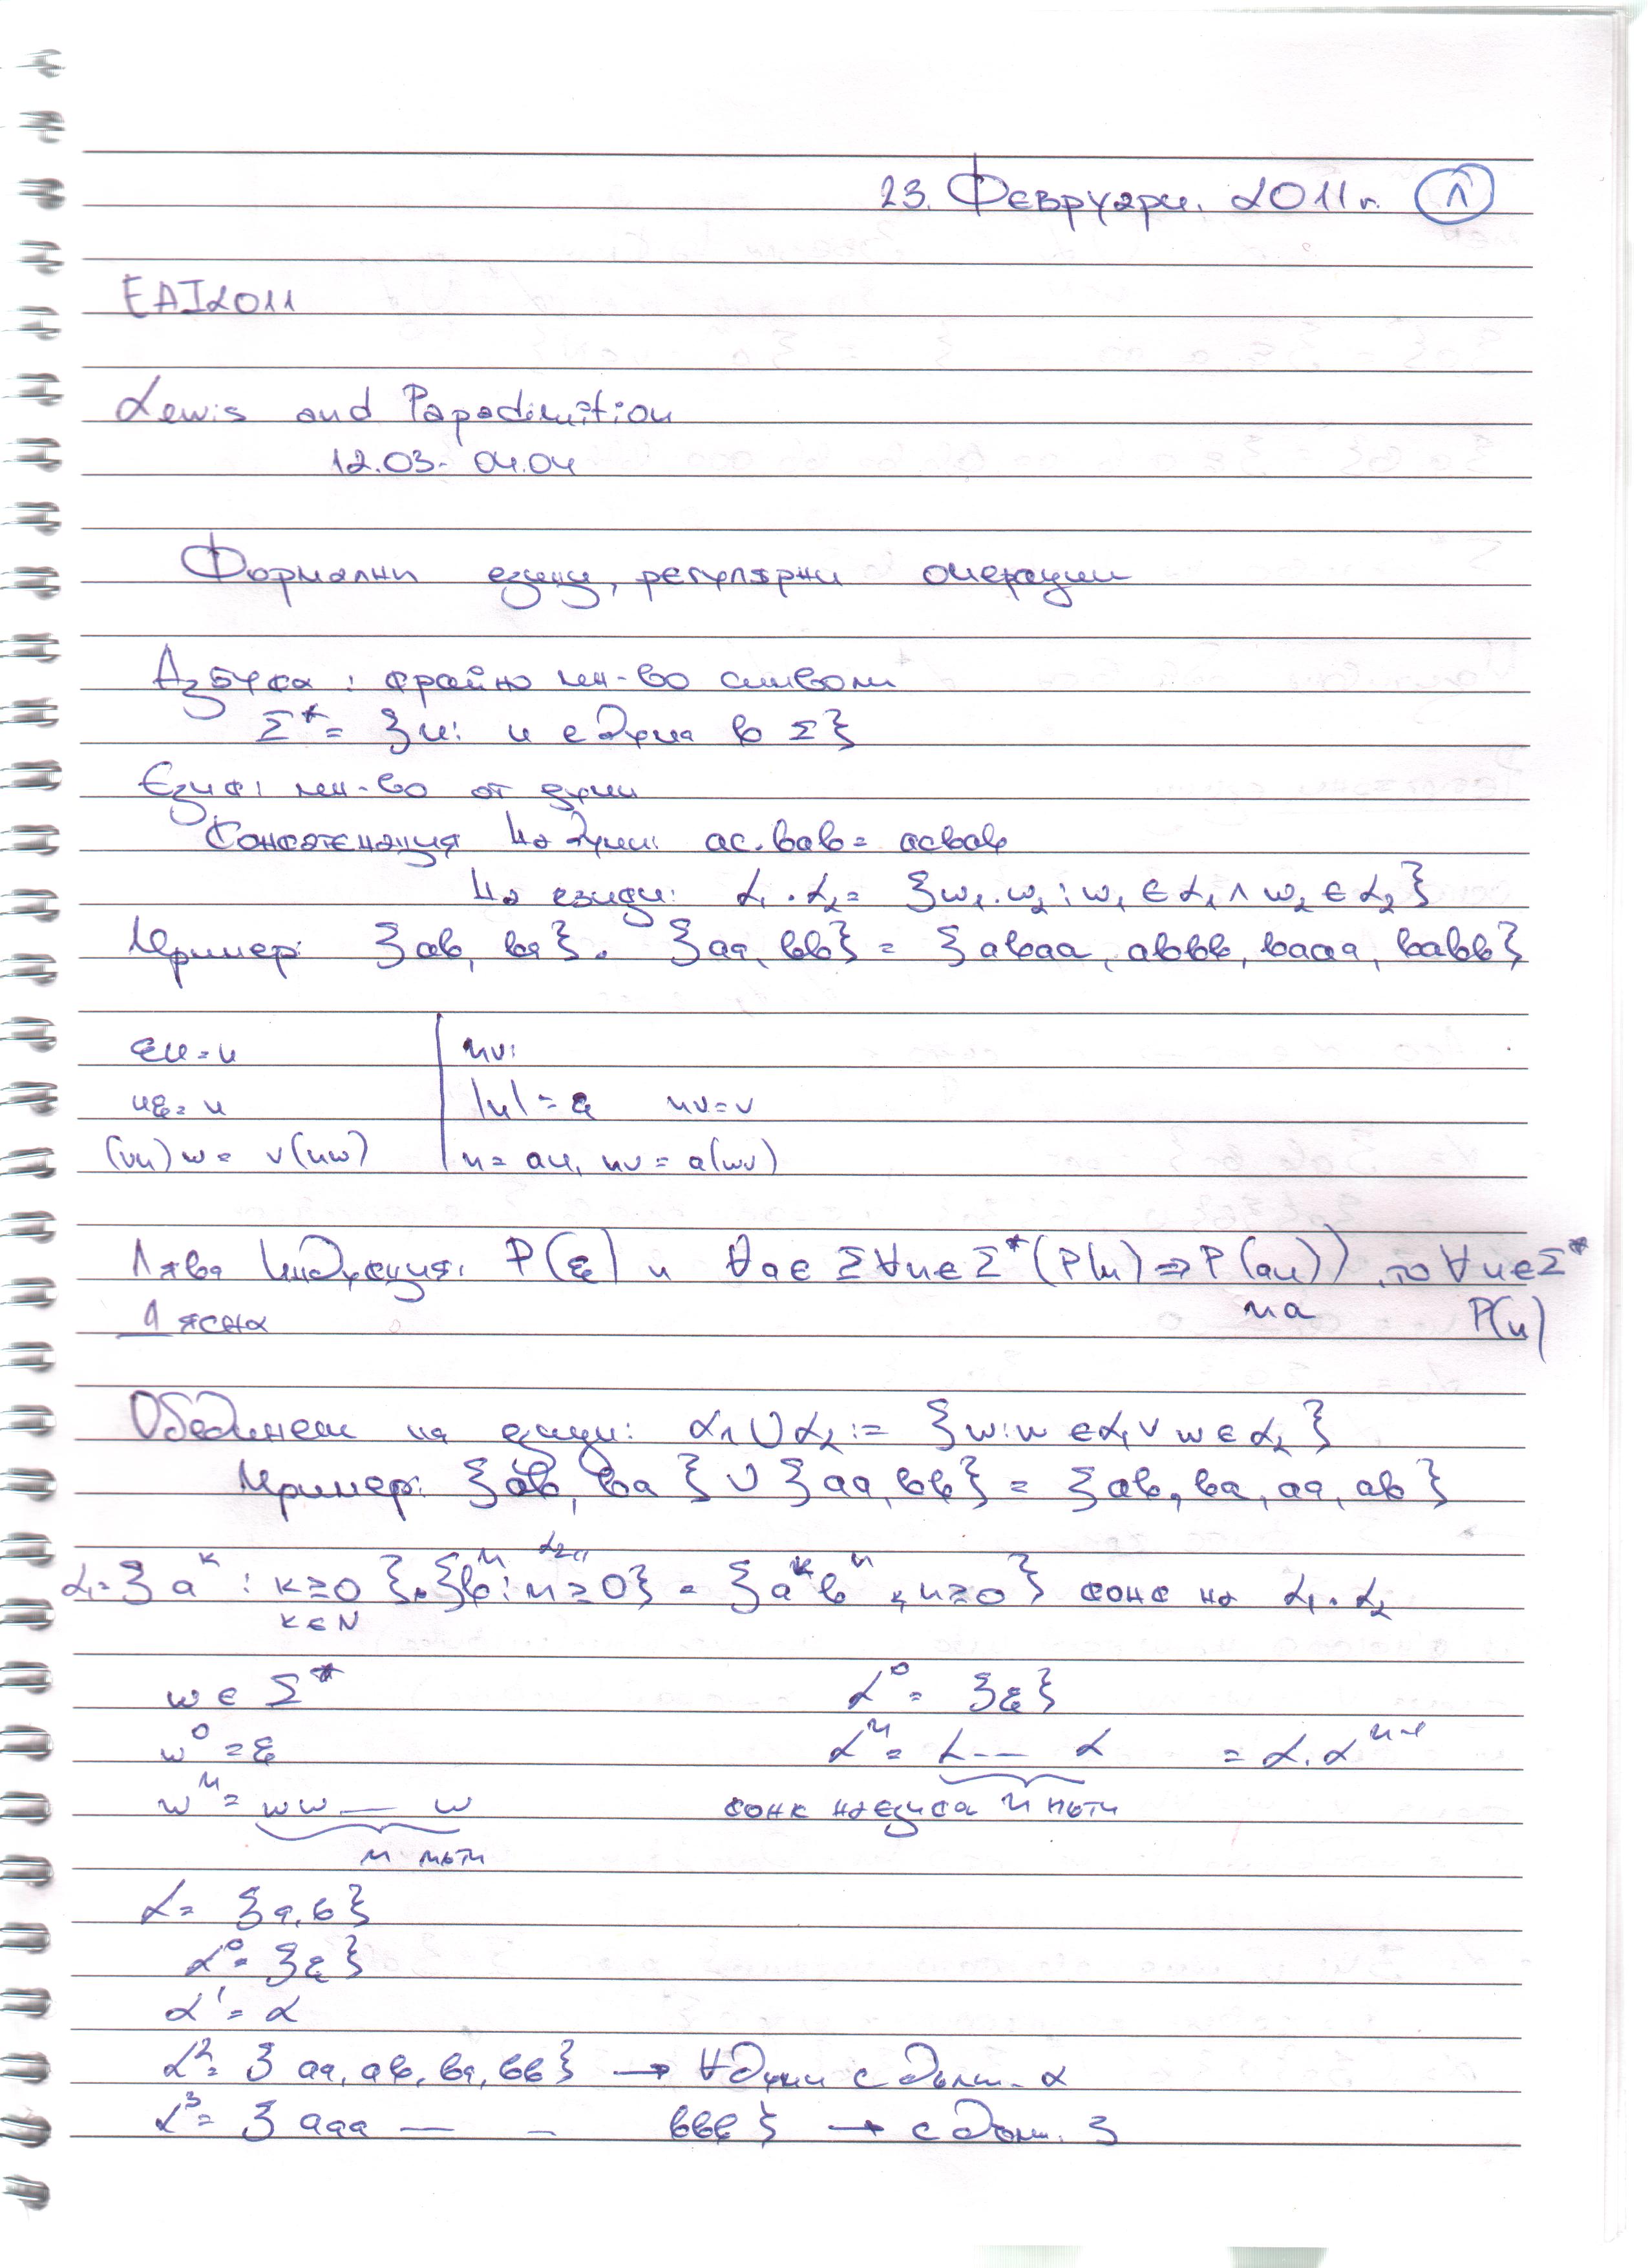 23. Февруари. 2011г. Л
EAI2011
Lewis and Papadimitiou
12.03- 04.04
Формални езици, регулярни операции
Азбука : крайно мн-во символи
Σ* = {u: u е дума в Σ}
Език: мн-во от думи
Конкатенация На думи: ac.bab = acbab
На езици: L₁ . L₂ = {w₁.w₂ : w₁ ∈ L₁ ∧ w₂ ∈ L₂}
Пример: {ab, ba} . {aa, bb} = {abaa, abbb, baaa, babb}
εu = u | uv:
uε = u | |u| = ε uv = v
(vu)w = v(uw) | u = au, uv = a(wv)
Лява индукция: P(ε) и ∀a∈Σ ∀u∈Σ* (P(u) ⇒ P(au)), то ∀u∈Σ*
дясна ua P(u)
Обединение на езици: L₁ ∪ L₂ := {w: w ∈ L₁ ∨ w ∈ L₂}
Пример: {ab, ba} ∪ {aa, bb} = {ab, ba, aa, ab}
L₁ = {aᵏ : k ≥ 0}.{bⁿ : n ≥ 0} = {aᵏbⁿ k, n ≥ 0} конк на L₁ . L₂
k ∈ N
w ∈ Σ* L⁰ = {ε}
w⁰ = ε Lⁿ = L -- L = L.Lⁿ⁻¹
wⁿ = ww — w конк на езика n пъти
n пъти
L = {a, b}
L⁰ = {ε}
L¹ = L
L² = {aa, ab, ba, bb} → ∀ думи с дълж. 2
L³ = {aaa — - bbb} → с дълж. 3